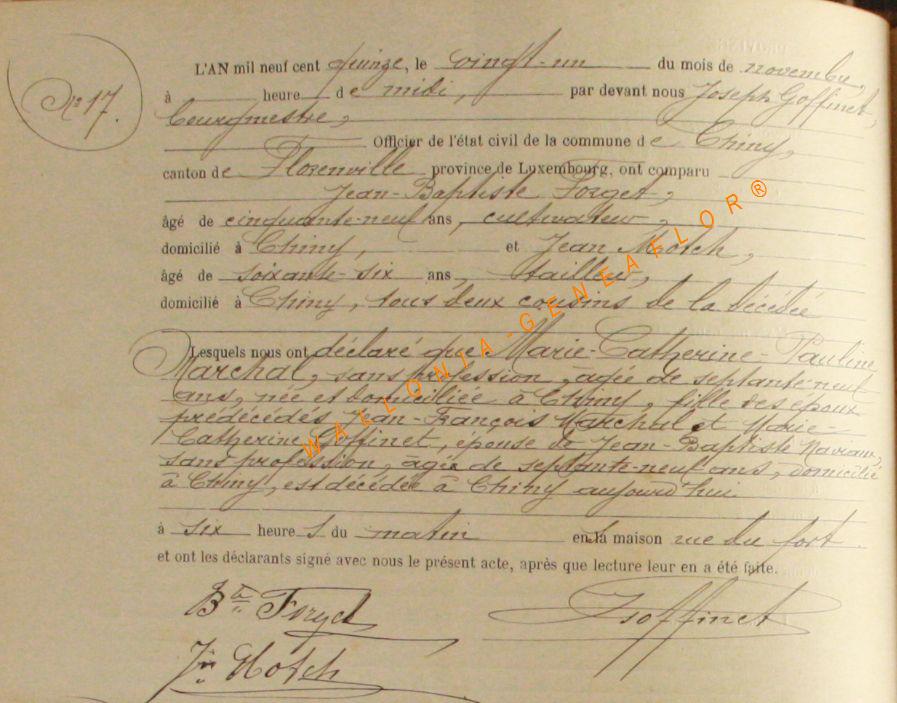 N° 17.
L'AN mil neuf cent quinze, le vingt-un du mois de novembre,
à heure de midi, par devant nous Joseph Goffinet,
bourgmestre,
Officier de l'état civil de la commune de Chiny,
canton de Florenville province de Luxembourg, ont comparu
Jean-Baptiste Forget,
âgé de cinquante-neuf ans, cultivateur,
domicilié à Chiny, et Jean Motch,
âgé de soixante-six ans, tailleur,
domicilié à Chiny, tous deux cousins de la décédée
Lesquels nous ont déclaré que Marie-Catherine-Pauline
Marchal, sans profession, âgée de septante-neuf
ans, née et domiciliée à Chiny, fille des époux
prédécédés Jean-François Marchal et Marie-
Catherine Goffinet, épouse de Jean-Baptiste
sans profession, âgé de septante-neuf ans, domicilié
à Chiny, est décédée à Chiny aujourd'hui
à six heures du matin en sa maison rue du fort.
et ont les déclarants signé avec nous le présent acte, après que lecture leur en a été faite.
Bte Forget
JGoffinet
Jn Motch
WALLONIA-GENEAFLOR®